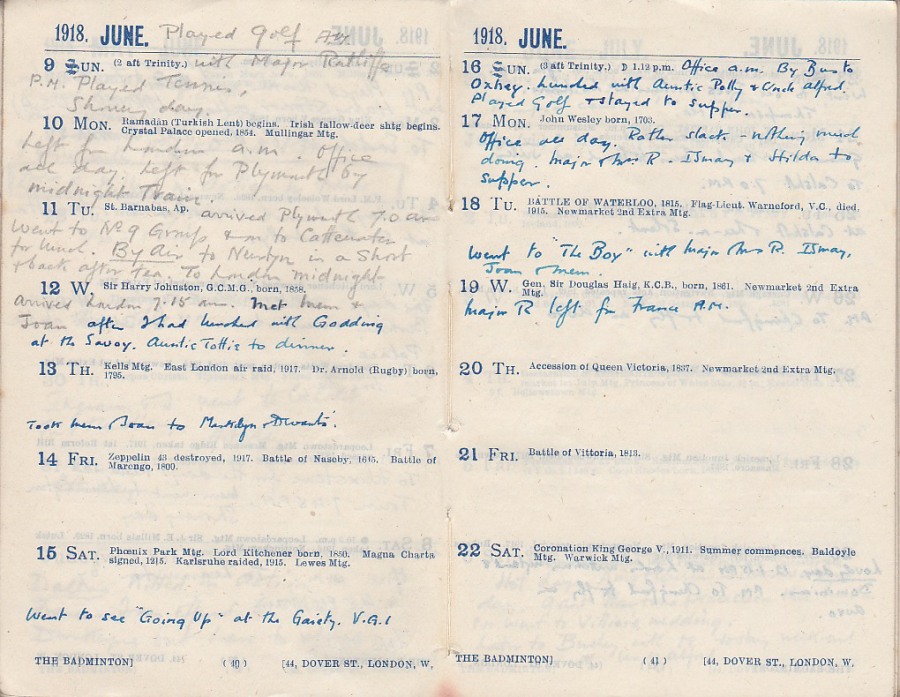 1918. JUNE. Played Golf AM.
9 SUN. (2 aft Trinity.) with Major Ratliffe
P.M. Played Tennis,
Showery day.
10 MON. Ramadân (Turkish Lent) begins. Irish fallow-deer shtg begins.
Crystal Palace opened, 1854. Mullingar Mtg.
Left for London a.m. Office
all day. Left for Plymouth by
midnight Train.
11 TU. St. Barnabas, Ap. arrived Plymouth 7.0 am
Went to No 9 Group & on to Cattewater
for lunch. By Air to Newlyn in a Short
& back after tea. To London midnight
12 W. Sir Harry Johnston, G.C.M.G., born, 1858.
arrived London 7.15 am. Met Mem &
Joan after I had lunched with Godding
at the Savoy. Auntie Tottie to dinner.
13 TH. Kells Mtg. East London air raid, 1917. Dr. Arnold (Rugby) born,
1795.
Took Mem & Joan to Maskelyn & Devants.
14 FRI. Zeppelin 43 destroyed, 1917. Battle of Naseby, 1645. Battle of
Marengo, 1800.
15 SAT. Phœnix Park Mtg. Lord Kitchener born, 1850. Magna Charta
signed, 1215. Karlsruhe raided, 1915. Lewes Mtg.
Went to see "Going Up" at the Gaiety. V.G.
THE BADMINTON] (40) [44, DOVER ST., LONDON, W.
1918. JUNE.
16 SUN. (3 aft Trinity.) D 1.12 p.m. Office a.m. By Bus to
Oxhey. lunched with Auntie Polly & Uncle Alfred.
Played Golf & stayed to supper.
17 MON. John Wesley born, 1703.
Office all day. Rather slack - nothing much
doing. Major & Mrs R. Ismay & Hilda to
supper.
18 TU. BATTLE OF WATERLOO, 1815. Flag-Lieut. Warneford, V.C., died,
1915. Newmarket 2nd Extra Mtg.
Went to "The Boy" with Major Mrs R. Ismay,
Joan & Mem.
19 W. Gen. Sir Douglas Haig, K.C.B., born, 1861. Newmarket 2nd Extra
Mtg.
Major R left for France A.M.
20 TH. Accession of Queen Victoria, 1837. Newmarket 2nd Extra Mtg.
21 FRI. Battle of Vittoria, 1813.
22 SAT. Coronation King George V., 1911. Summer commences. Baldoyle
Mtg. Warwick Mtg.
THE BADMINTON] (41) [44, DOVER ST., LONDON, W.